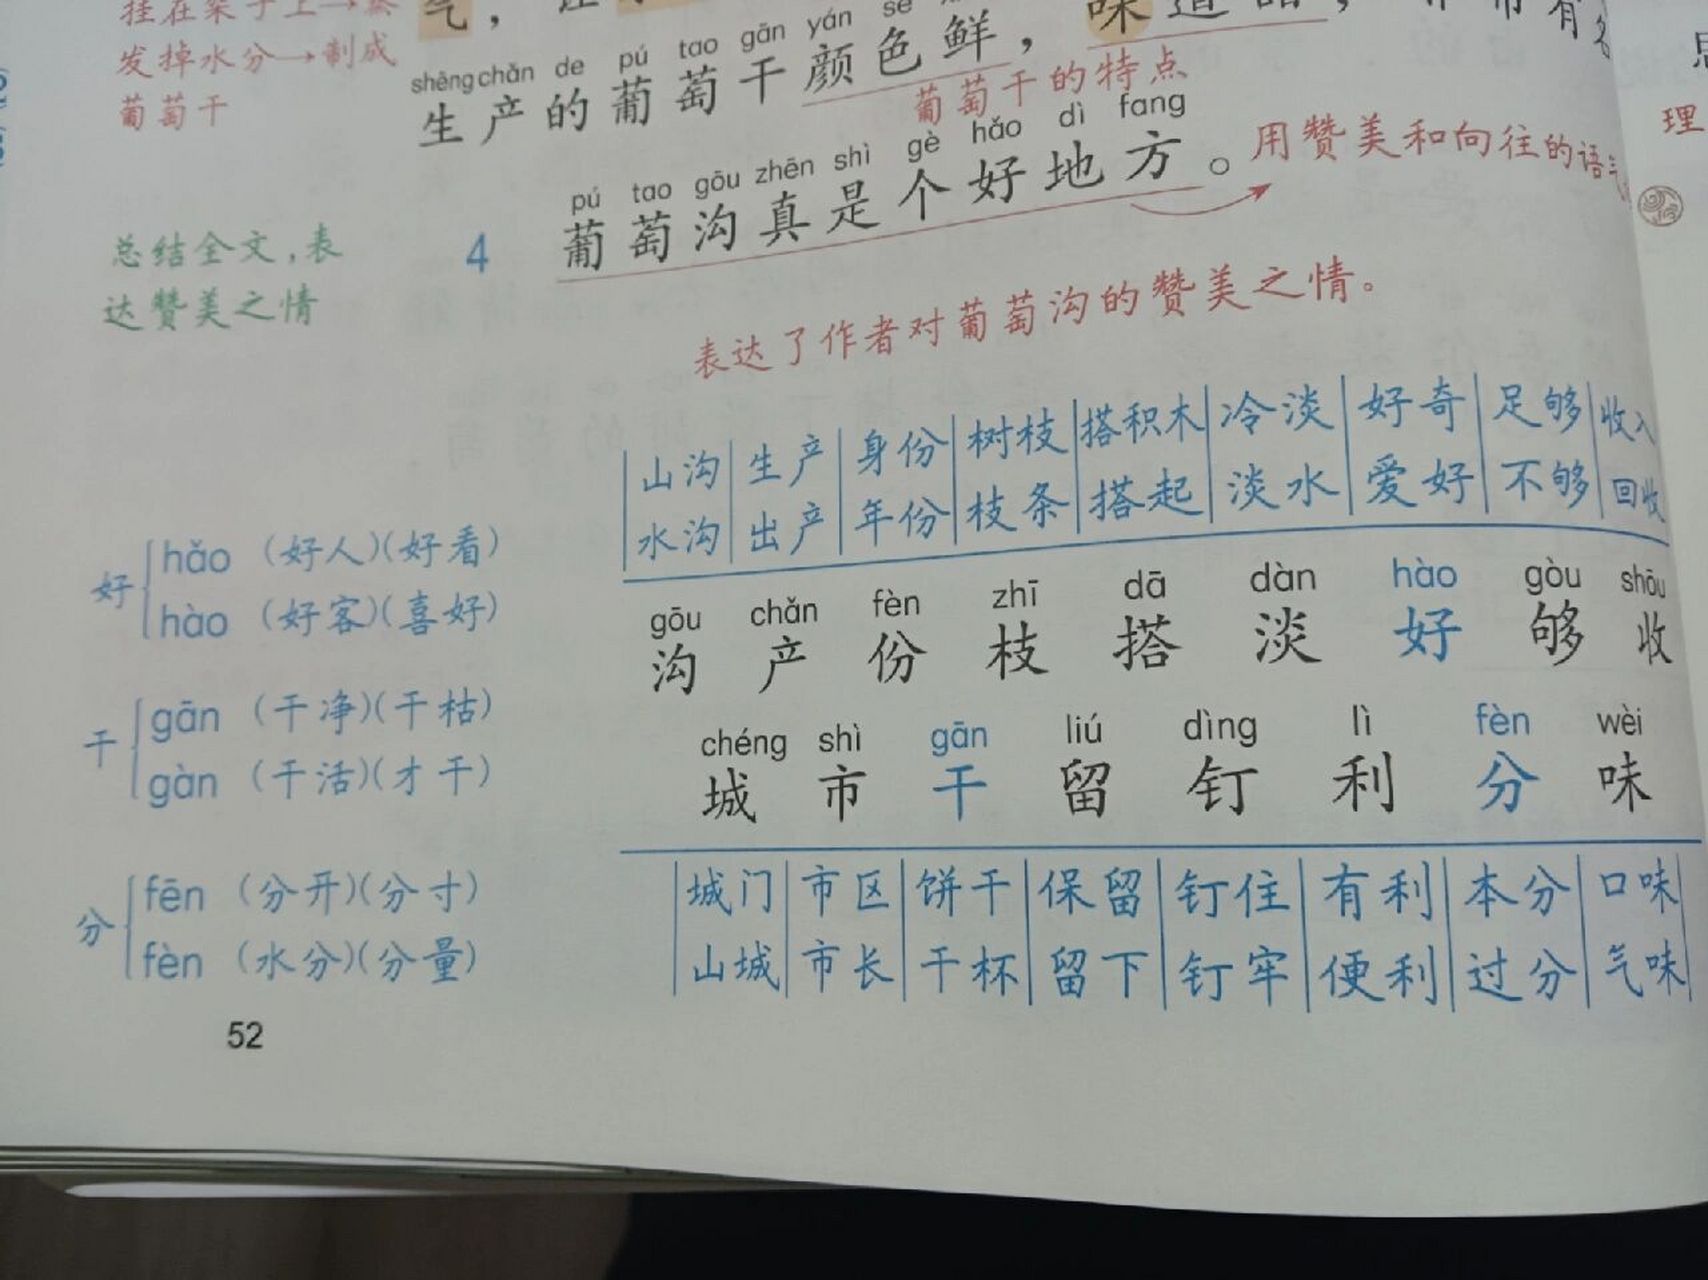 挂在架子上→蒸
发掉水分→制成
葡萄干
气，
味道
shēng chǎn de pú tao gān yán sè
生产的葡萄干颜色鲜，
葡萄干的特点
pú tao gōu zhēn shì gè hǎo dì fang
4 葡萄沟真是个好地方。
用赞美和向往的语气
总结全文，表
达赞美之情
表达了作者对葡萄沟的赞美之情。
山沟 生产 身份 树枝 搭积木 冷淡 好奇 足够 收入
水沟 出产 年份 枝条 搭起 淡水 爱好 不够 回收
gōu chǎn fèn zhī dā dàn hào gòu shōu
沟 产 份 枝 搭 淡 好 够 收
chéng shì gān liú dìng lì fèn wèi
城 市 干 留 钉 利 分 味
城门 市区 饼干 保留 钉住 有利 本分 口味
山城 市长 干杯 留下 钉牢 便利 过分 气味
好
hǎo （好人）（好看）
hào （好客）（喜好）
干
gān （干净）（干枯）
gàn （干活）（才干）
分
fēn （分开）（分寸）
fèn （水分）（分量）
52
理